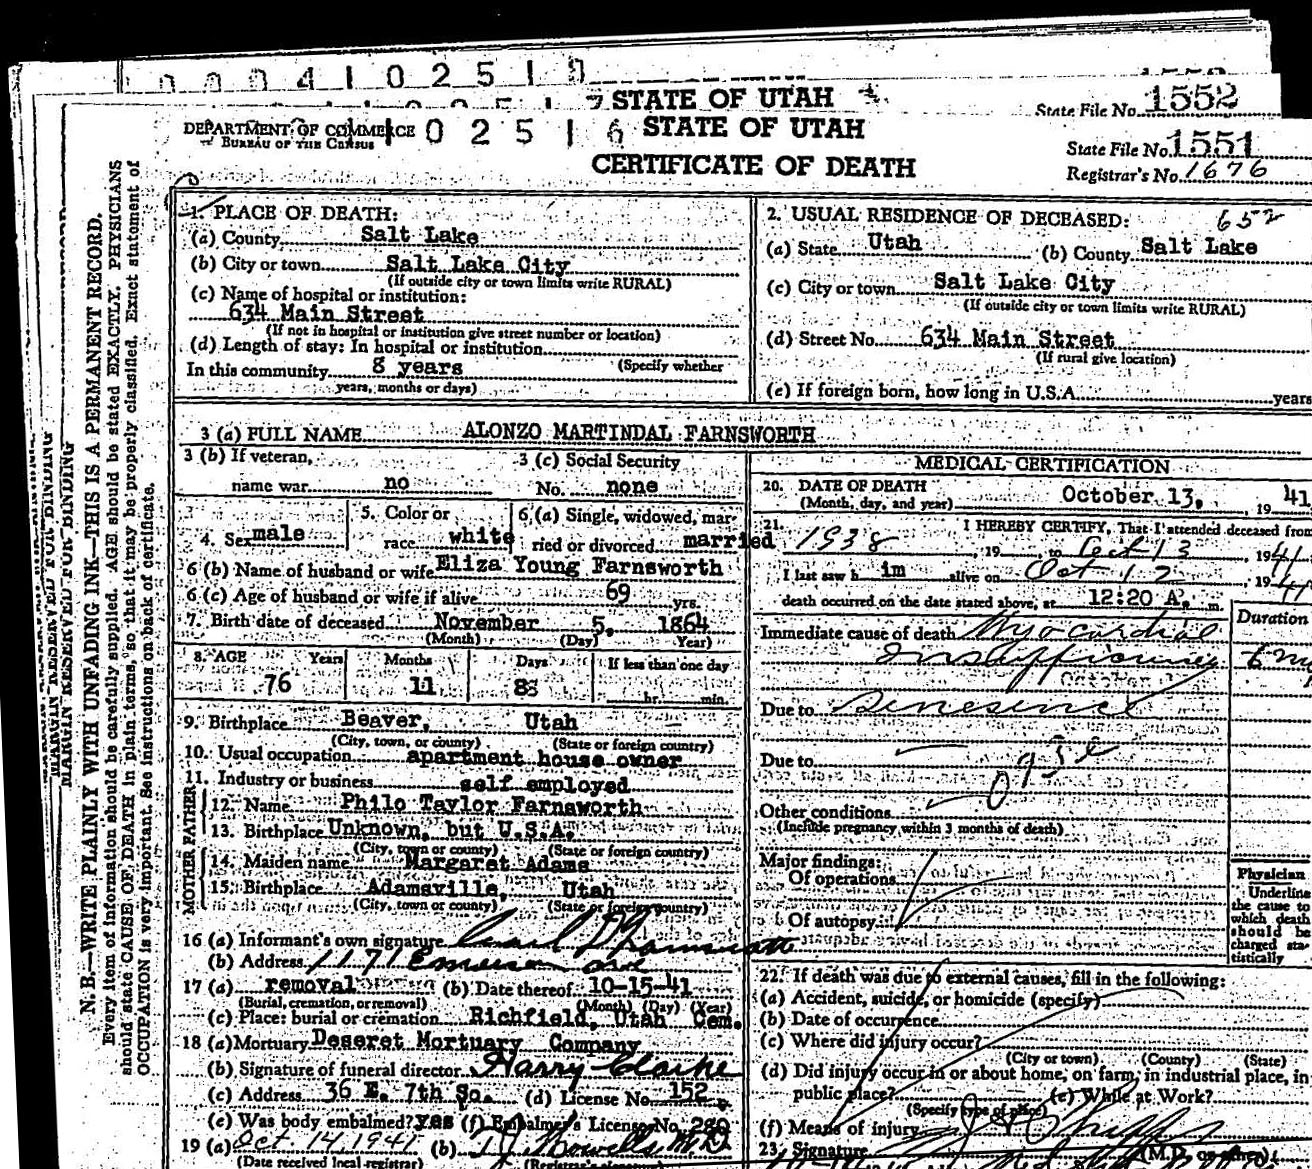 0004102510
STATE OF UTAH
State File No. 1552
DEPARTMENT OF COMMERCE
BUREAU OF THE CENSUS
102516
STATE OF UTAH
CERTIFICATE OF DEATH
State File No. 1551
Registrar's No. 1676
N. B.—WRITE PLAINLY WITH UNFADING INK—THIS IS A PERMANENT RECORD.
Every item of information should be carefully supplied. AGE should be stated EXACTLY. PHYSICIANS
should state CAUSE OF DEATH in plain terms, so that it may be properly classified. Exact statement of
OCCUPATION is very important. See instructions on back of certificate.
MARGIN RESERVED FOR BINDING
1. PLACE OF DEATH:
(a) County Salt Lake
(b) City or town Salt Lake City
(If outside city or town limits write RURAL)
(c) Name of hospital or institution:
634 Main Street
(If not in hospital or institution give street number or location)
(d) Length of stay: In hospital or institution
In this community 8 years (Specify whether
years, months or days)
2. USUAL RESIDENCE OF DECEASED: 652
(a) State Utah (b) County Salt Lake
(c) City or town Salt Lake City
(If outside city or town limits write RURAL)
(d) Street No. 634 Main Street
(If rural give location)
(e) If foreign born, how long in U.S.A. years
3 (a) FULL NAME ALONZO MARTINDAL FARNSWORTH
3 (b) If veteran, 3 (c) Social Security
name war no No. none
4. Sex male 5. Color or race white 6. (a) Single, widowed, married or divorced married
6 (b) Name of husband or wife Eliza Young Farnsworth
6 (c) Age of husband or wife if alive 69 yrs.
7. Birth date of deceased November 5, 1864
(Month) (Day) Year)
8. AGE Years Months Days If less than one day
76 11 8 hr. min.
9. Birthplace Beaver, Utah
(City, town, or county) (State or foreign country)
10. Usual occupation apartment house owner
11. Industry or business self employed
FATHER
12. Name Philo Taylor Farnsworth
13. Birthplace Unknown, but U.S.A.
(City, town or county) (State or foreign country)
MOTHER
14. Maiden name Margaret Adams
15. Birthplace Adamsville, Utah
(City, town or county) (State or foreign country)
16 (a) Informant's own signature Carl Farnsworth
(b) Address 1171 Emerson Ave
17 (a) removal (b) Date thereof 10-15-41
(Burial, cremation, or removal) (Month) (Day) (Year)
(c) Place: burial or cremation Richfield, Utah Cem.
18 (a) Mortuary Deseret Mortuary Company
(b) Signature of funeral director Harry Clarke
(c) Address 36 E. 7th So. (d) License No. 152
(e) Was body embalmed? yes (f) Embalmer's License No. 280
19 (a) Oct. 14, 1941 (b) M.D.
(Date received local registrar) (Registrar's signature)
MEDICAL CERTIFICATION
20. DATE OF DEATH
(Month, day, and year) October 13, 1941
21. I HEREBY CERTIFY, That I attended deceased from
1938, 19 to Oct 13, 1941
I last saw him alive on Oct 12, 1941
death occurred on the date stated above, at 12:20 A. m.
Duration
Immediate cause of death Myocardial
Insufficiency
Due to Senesence
Due to
Other conditions
(Include pregnancy within 3 months of death)
Major findings:
Of operations
Of autopsy
Physician
Underline
the cause to
which death
should be
charged sta-
tistically
22. If death was due to external causes, fill in the following:
(a) Accident, suicide, or homicide (specify)
(b) Date of occurrence
(c) Where did injury occur?
(City or town) (County) (State)
(d) Did injury occur in or about home, on farm, in industrial place, in
public place? (e) While at Work?
(Specify type of place)
(f) Means of injury
23. Signature (M.D. or other)